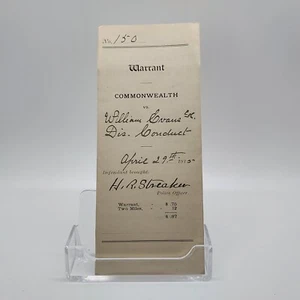 No. 150
Warrant
COMMONWEALTH
vs.
William Evans
Dis. Conduct
April 29th
Defendant brought
H. R. Streaker
Police Officer
Warrant, - - $ 75
Two Miles, - - 12
$ 87